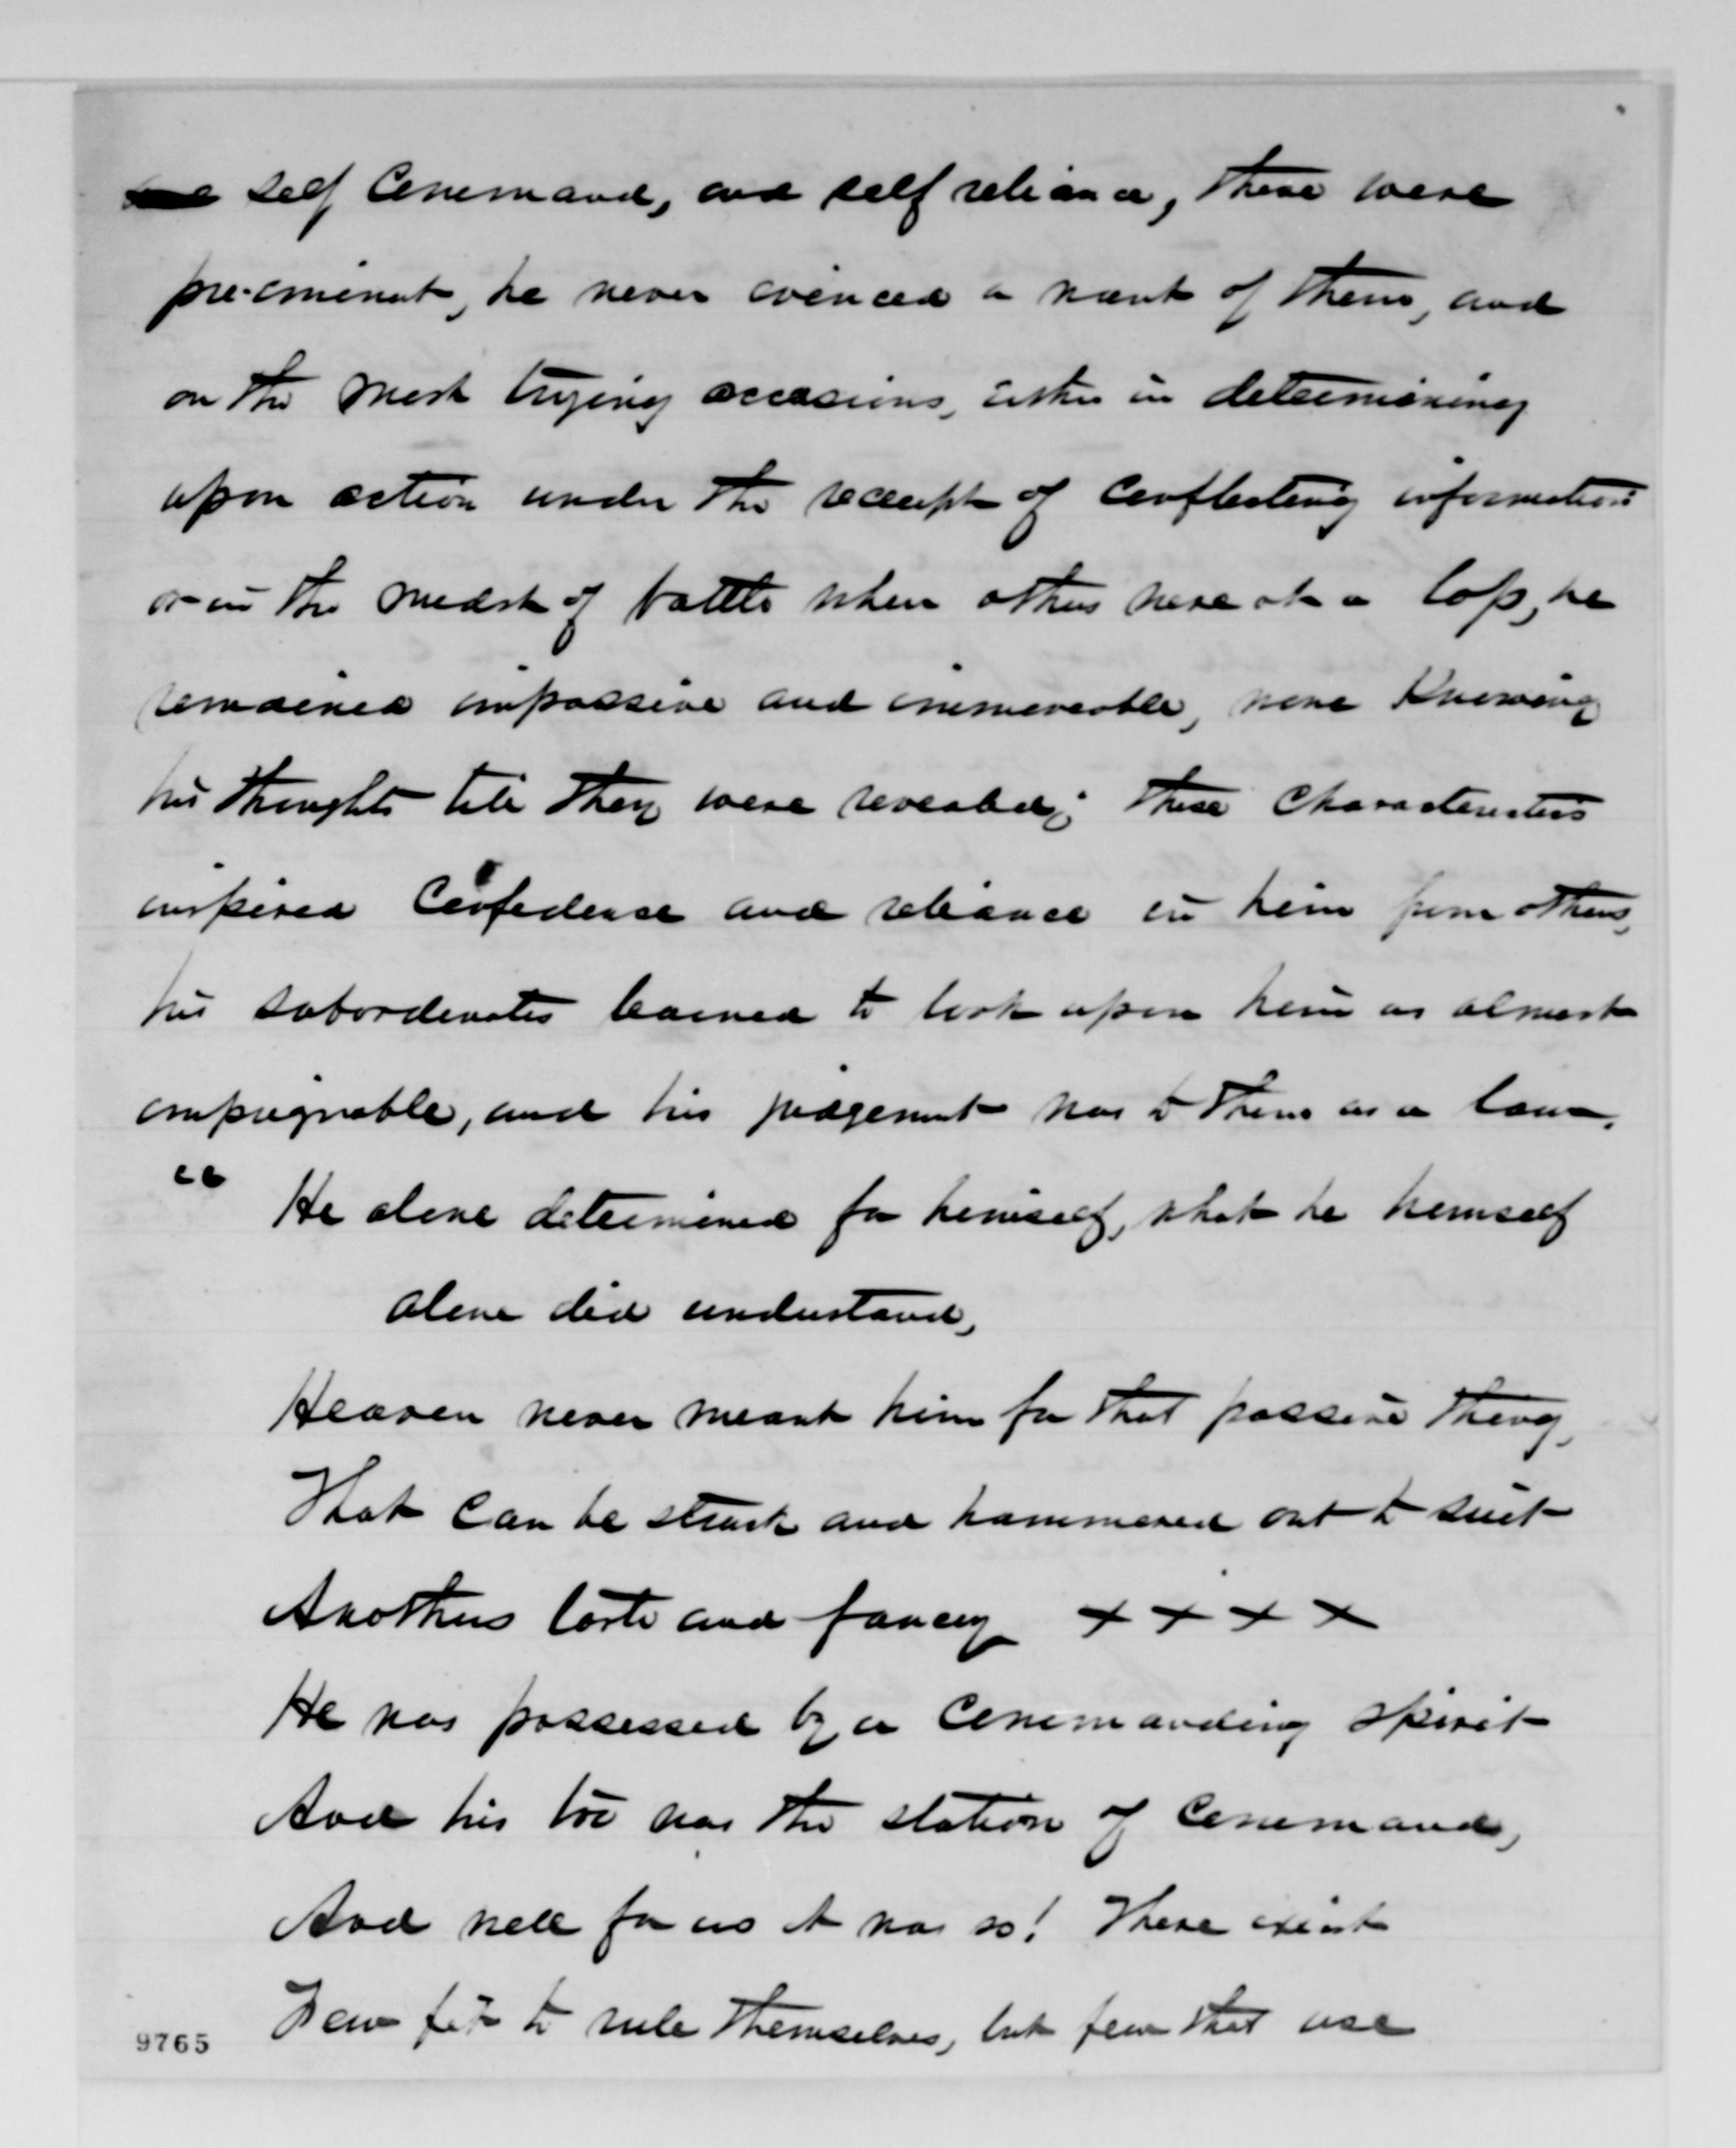 self command, and self reliance, these were
pre-eminent, he never evinced a want of them, and
on the most trying occasions, either in determining
upon action under the receipt of conflicting information
or in the midst of battle when others were at a loss, he
remained impassive and immoveable, none knowing
his thoughts till they were revealed; these characteristics
inspired confidence and reliance in him from others,
his subordinates learned to look upon him as almost
impregnable, and his judgement was to them as a law.
"He alone determined for himself, what he himself
alone did understand,
Heaven never meant him for that passive thing,
That can be struck and hammered out to suit
Anothers taste and fancy x x x x
He was possessed by a commanding spirit
And his too was the station of command,
And well for us it was so! There exist
Few fit to rule themselves, but few that use
9765